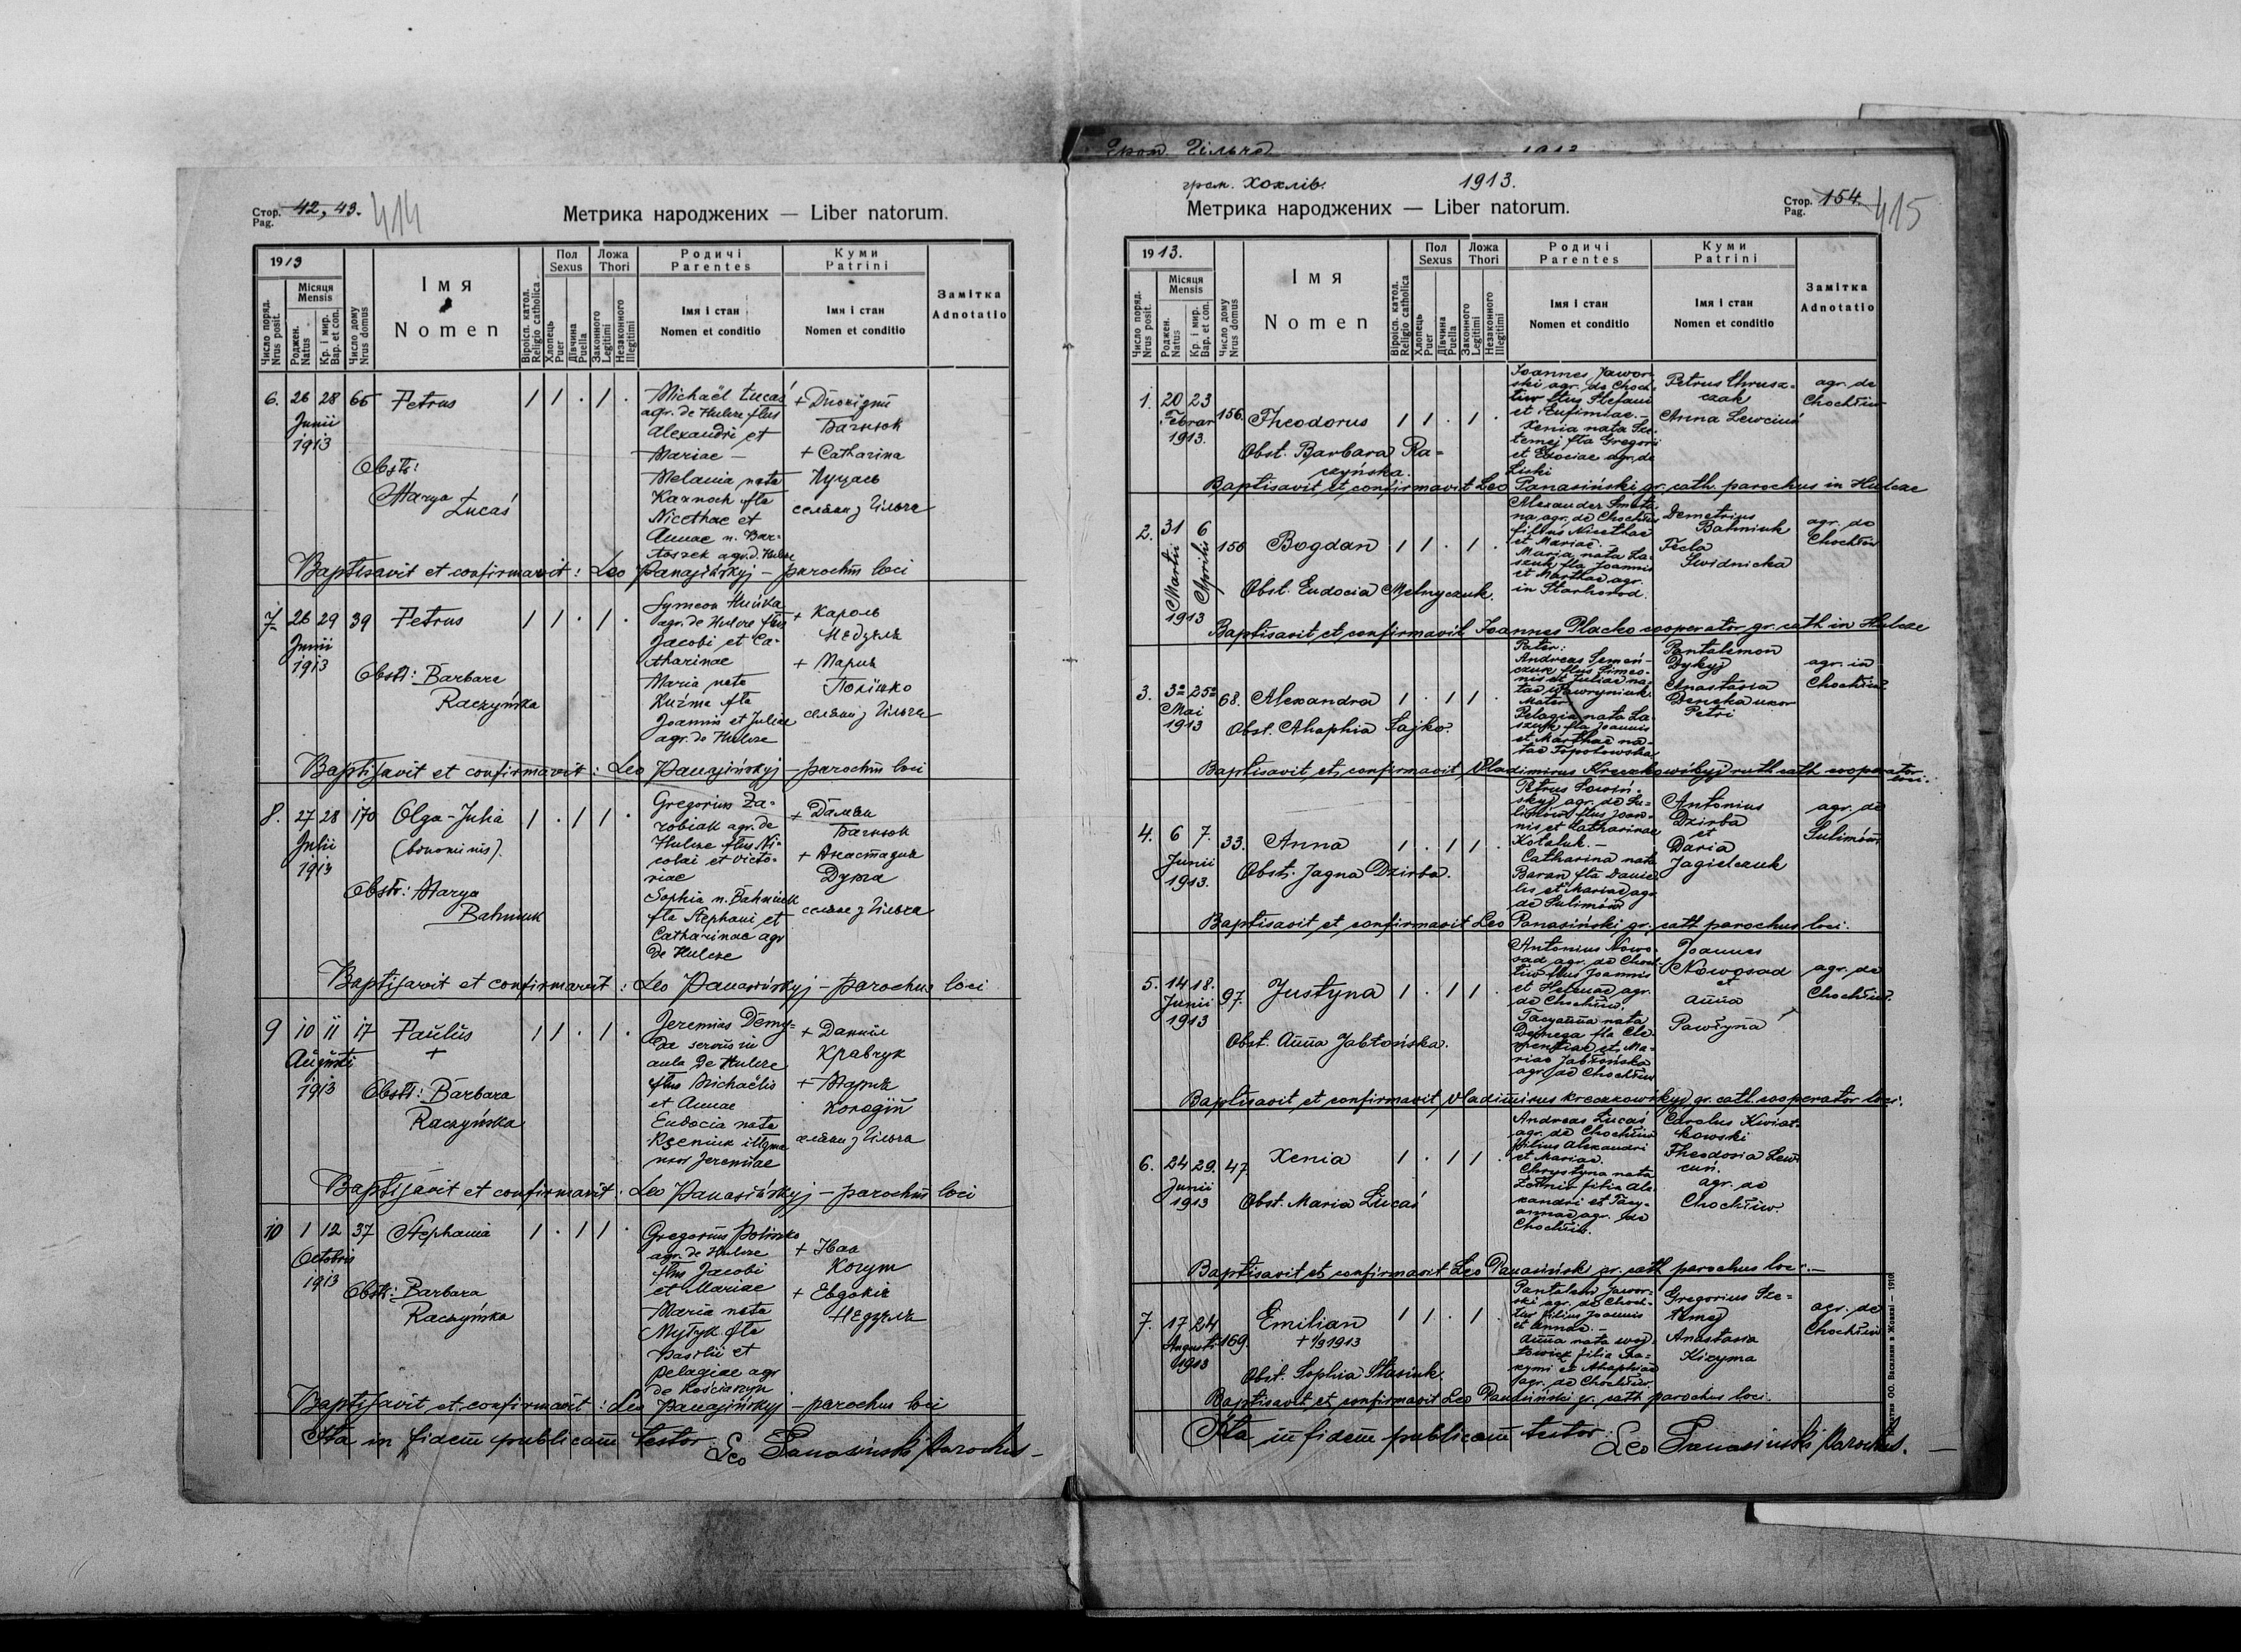 Стор. Pag. 42, 43. 414
Метрика народжених — Liber natorum.
1913
Число поряд. Nrus posit.
Місяця Mensis
Роджен. Natus
Кр. і мир. Bap. et con.
Число дому Nrus domus
Імя
Nomen
Віроісп. катол. Religio catholica
Пол Sexus
Хлопець Puer
Дівчина Puella
Ложа Thori
Законного Legitimi
Незаконного Illegitimi
Родичі Parentes
Імя і стан
Nomen et conditio
Куми Patrini
Імя і стан
Nomen et conditio
Замітка
Adnotatio
6. 26 28 66 Petrus 1 1 . 1 .
Junii
1913
Obstr:
Marya
Łucaś
Michaël Łucaś
agr. de Hulcze flius
Alexandri et
Mariae —
Melania nata
Karnoch fla
Nicethae et
Annae n. Bar-
toszek agr. d. Hulcze
+ Дионізий
Багнюк
+ Catharina
Луцась
селяни з Гільча
Baptisavit et confirmavit: Leo Panasińskyj — parochus loci
7. 26 29 39 Petrus 1 1 . 1 .
Junii
1913
Obstr: Barbara
Raczyńska
Symeon
agr. de Hulcze flius
Jacobi et Ca-
tharinae
Maria nata
Kuźma fla
Joannis et Juliae
agr. de Hulcze
+ Кароль
Недзель
+ Мария
Полішко
селяни з Гільча
Baptisavit et confirmavit: Leo Panasińskyj — parochus loci
8. 27 28 170 Olga-Julia 1 . 1 1 .
Julii
1913
(binominis).
Obstr: Marya
Bahniuk
Gregorius Za-
robiak agr. de
Hulcze flius Ni-
colai et Victo-
riae
Sophia n. Bahniuk
fla Stephani et
Catharinae agr
de Hulcze
+ Дамян
Багнюк
+ Анастазия
Дужа
селяне з Гільча
Baptisavit et confirmavit: Leo Panasińskyj — parochus loci
9 10 11 17 Paulus 1 1 . 1 .
+
Augusti
1913
Obstr: Barbara
Raczyńska
Jeremias Demy-
da servus in
aula de Hulcze
flius Michaëlis
et Annae
Eudocia nata
Kseniuk
uxor Jeremiae
+ Даниїл
Кравчук
+ Мария
Колодій
селяни з Гільча
Baptisavit et confirmavit: Leo Panasińskyj — parochus loci
10 1 12 37 Stephania 1 . 1 1 .
Octobris
1913
Obstr: Barbara
Raczyńska
Gregorius Poliszko
agr. de Hulcze
flius Jacobi
et Mariae
Maria nata
Mytyk fla
Basilii et
Pelagiae agr
de Kościaszyn
+ Іван
Когут
+ Евдокія
Недзель
Baptisavit et confirmavit: Leo Panasińskyj — parochus loci
Ita in fidem publicam testor: Leo Panasiński Parochus —
Гільча 1913
гром. Хохлів. 1913.
Метрика народжених — Liber natorum.
Стор. Pag. 154. 415
1913.
Число поряд. Nrus posit.
Місяця Mensis
Роджен. Natus
Кр. і мир. Bap. et con.
Число дому Nrus domus
Імя
Nomen
Віроісп. катол. Religio catholica
Пол Sexus
Хлопець Puer
Дівчина Puella
Ложа Thori
Законного Legitimi
Незаконного Illegitimi
Родичі Parentes
Імя і стан
Nomen et conditio
Куми Patrini
Імя і стан
Nomen et conditio
Замітка
Adnotatio
1. 20 23 156. Theodorus 1 1 . 1 .
Februar
1913.
Obst. Barbara Ra-
czyńska.
Joannes Jawor-
ski agr. de Choch-
łiw flius Stefani
et Eufimiae. —
Xenia nata Sze-
temej fla Gregorii
et Edociae agr. de
Liski
Petrus Chrusz-
czak
Anna Lewciuś
agr. de
Chochłiw
Baptisavit et confirmavit Leo Panasiński gr. cath. parochus in Hulcze
2. 31 6 156 Bogdan 1 1 . 1 .
Martii Aprilis
1913
Obst. Eudocia Melnyczuk.
Alexander Smota-
na, agr. de Chochłiw
filius Nicethae
et Mariae. —
Maria nata La-
szuk fla Joannis
et Marthae agr.
in Starhorod.
Demetrius
Bahniuk
Tecla
Swidnicka
agr. de
Chochłiw
Baptisavit et confirmavit Joannes Placko cooperator gr. cath in Hulcze
3. 3 25 68. Alexandra 1 . 1 1 .
Mai
1913
Obst. Ahaphia Łajko.
Pater:
Andreas Semeń-
czuk flius Simeo-
nis et Juliae na-
tae Wawryniuk.
Mater:
Pelagia nata La-
szuk fla Joannis
et Marthae na-
tae Topotowska
Pantalemon
Dykyj
Anastasia
Deneka uxor
Petri
agr. in
Chochłiw.
Baptisavit et confirmavit Vladimirus Kreczkowśkyj ruth. cath cooperator loci.
4. 6 7. 33. Anna 1 . 1 1 .
Junii
1913.
Obst. Jagna Dzirba.
Petrus Sowiń-
skyj agr. de Su-
limów flius Joan-
nis et Catharinae
Kołatuk. —
Catharina nata
Baran fla Danie-
lis et Mariae agr
de Sulimów
Antonius
Dzirba
et
Daria
Jagielczuk
agr. de
Sulimów
Baptisavit et confirmavit Leo Panasiński gr. cath parochus loci.
5. 14 18. 97. Justyna 1 . 1 1 .
Junii
1913
Obst. Anna Jabłońska.
Antonius Nowo-
sad agr. de Choch-
łiw flius Joannis
et Helenae agr.
de Chochłiw.
Tacyanna nata
Dejnega fla Cle-
mentiae et Ma-
riae Jabłońska
agr. de Chochłiw
Joannes
Nowosad
et
Anna
Pawłyna
agr. de
Chochłiw.
Baptisavit et confirmavit Vladimirus Kreczkowśkyj gr. cath. cooperator loci.
6. 24 29. 47 Xenia 1 . 1 1 .
Junii
1913
Obst. Maria Łucaś
Andreas Łucaś
agr. de Chochłiw
filius Alexandri
et Mariae.
Chrystyna nata
filia Ale-
xandri et Tacy-
annae agr. de
Chochłiw.
Carolus Kwiat-
kowski
Theodosia Lew-
cuń.
agr. de
Chochłiw.
Baptisavit et confirmavit Leo Panasiński gr. cath parochus loci. —
7. 17 24 169. Emilian 1 1 . 1 .
Augusti
1913
+ 1/9 1913
Obst. Sophia Stasiuk.
Pantaleon Jawor-
ski agr. de Choch-
łiw filius Joannis
et Annae. —
Anna nata Woj-
towicz filia Ma-
xymi et Ahaphiae
agr. de Chochłiw.
Gregorius Sze-
temej
Anastasia
Kizyma
agr. de
Chochłiw
Baptisavit et confirmavit Leo Panasiński gr. cath parochus loci.
Ita in fidem publicam testor: Leo Panasiński Parochus. —
Печатня ОО. Василиян в Жовкві — 1910